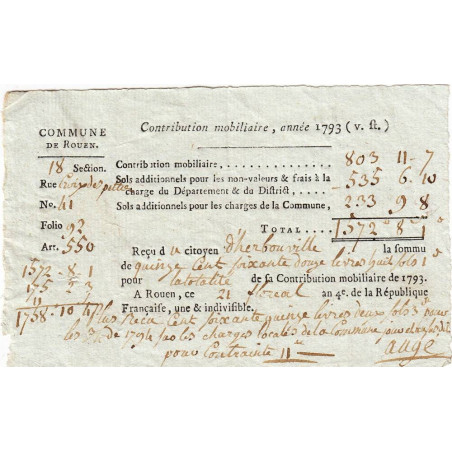 COMMUNE
DE ROUEN.
18 Section.
Rue
No. 41
Folio 92
Art. 550
1572 - 8 - 1
175 2 3
11
1758 - 10 - 4
Contribution mobiliaire, année 1793 (v. st.)
Contribution mobiliaire, 803 11 - 7
Sols additionnels pour les non-valeurs & frais à la
charge du Département & du District, 535 6 10
Sols additionnels pour les charges de la Commune, 233 9 8
TOTAL 1572 8 1
Reçu du citoyen d'herbouville la somme
de quinze Cent soixante douze livres huit sols 1 d
pour la totalité de sa Contribution mobiliaire de 1793.
A Rouen, ce 21 floreal an 4e. de la République
Française, une & indivisible.
Plus Recu Cent soixante quinze livres deux sols 3 d pour
les 3 de 1794 pour les charges locales de la Commune
pour Contrainte 11
auge